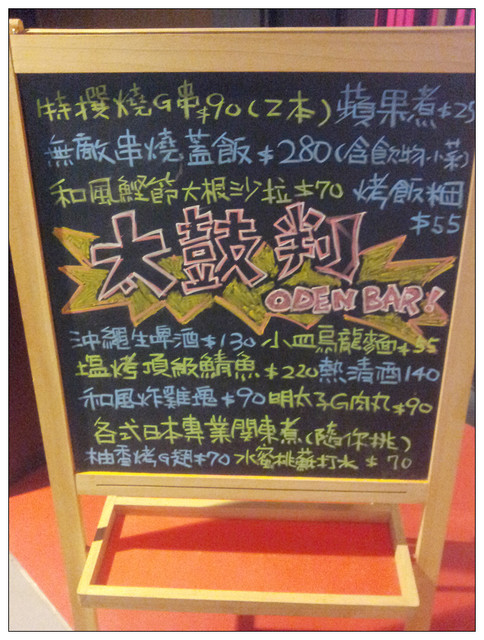 特撰燒G串$90(2本) 蘋果煮$25
無敵串燒蓋飯$280(含飲物小菜)
和風鰹節大根沙拉$70 烤飯糰
$55
太鼓判
ODEN BAR!
沖繩生啤酒$130 小皿烏龍麵$55
塩烤頂級鯖魚$220 熱清酒140
和風炸雞塊$90 明太子G肉丸$90
各式日本專業関東煮(隨你挑)
柚香烤G翅$70 水蜜桃蘇打水$70